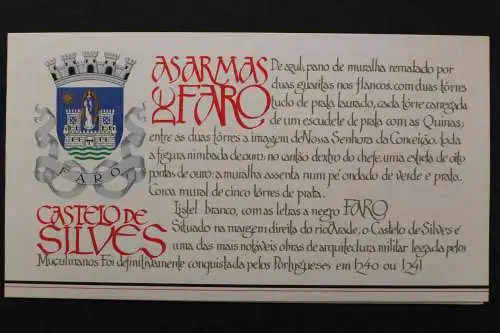 AS ARMAS
DE FARO
De azul, pano de muralha rematado por
duas guaritas nos flancos, com duas tôrres
tudo de prata lavrado, cada tôrre carregada
de um escudete de prata com as Quinas,
entre as duas tôrres a imagem de Nossa Senhora da Conceição, toda
a figura nimbada de ouro; no cantão dextro do chefe, uma estrela de oito
pontas de ouro; a muralha assenta num pé ondado de verde e prata.
Coroa mural de cinco tôrres de prata.
Listel branco, com as letras a negro FARO
FARO
CASTELO DE
SILVES
Situado na margem direita do rio Arade, o Castelo de Silves é
uma das mais notáveis obras de arquitectura militar legada pelos
Muçulmanos. Foi definitivamente conquistada pelos Portugueses em 1240 ou 1241